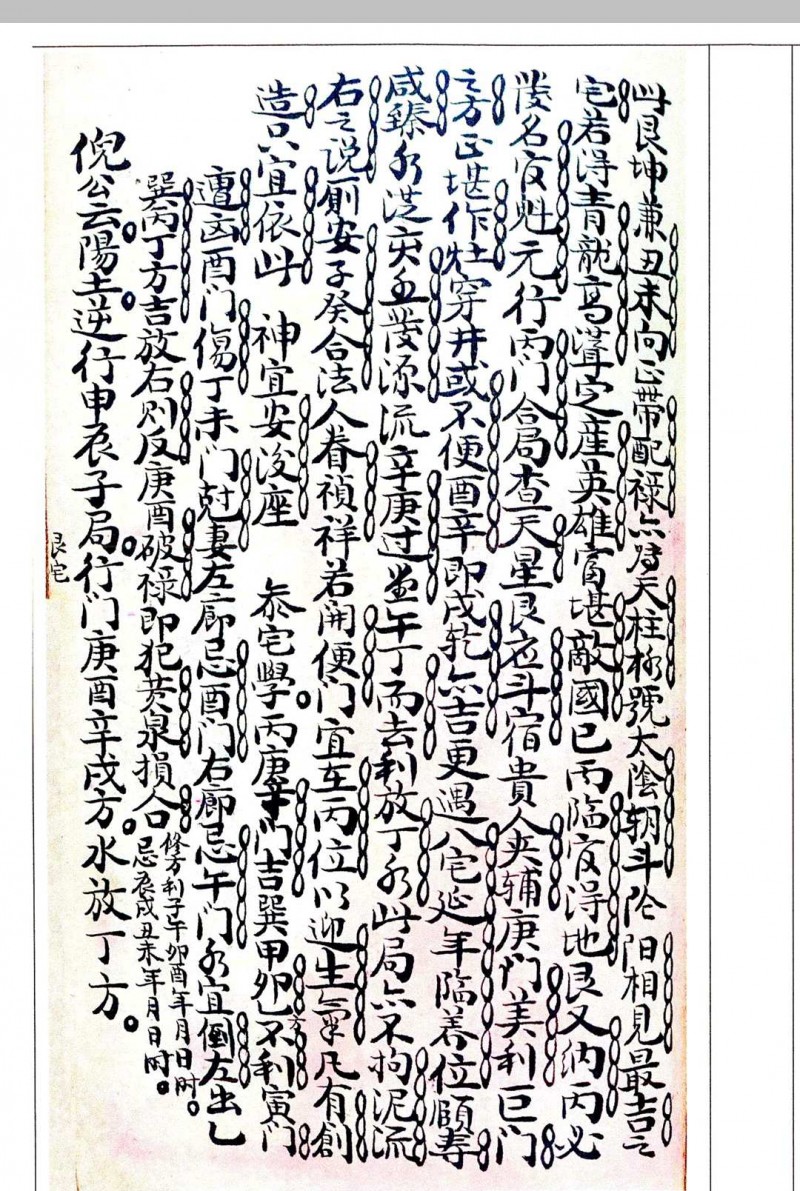 此艮坤兼丑未向正帶配祿亦時天柱极號太陰朝斗阾阳相見最吉之
宅若得青龍高聳定產英雄富堪敵國巳丙臨官得地艮又納丙必
發名官魁元行丙門合局查天星艮名斗宿貴人夹辅庚門美利巨门
之方正堪作灶穿井或不便酉辛即戌乾亦吉更遇八宅延年臨养位頤寿
咸臻水法亥壬發源流辛庚过堂午丁而去利放丁水此局亦不拘泥流
右之说厕安子癸合法人眷禎祥若開便门宜在丙位以迎生氣凡有創
造只宜依此 神宜安後座 泰宅學丙庚辛门吉巽甲卯乙方不利寅门
遭凶酉门傷丁未门尅妻左廊忌酉门右廊忌午门水宜倒左出乙
巽丙丁方吉放右则反庚酉破祿即犯黄泉損人口
修方利子午卯酉年月日时
忌辰戌丑未年月日时
倪公云陽土逆行申辰子局行门庚酉辛戌方水放丁方
艮宅